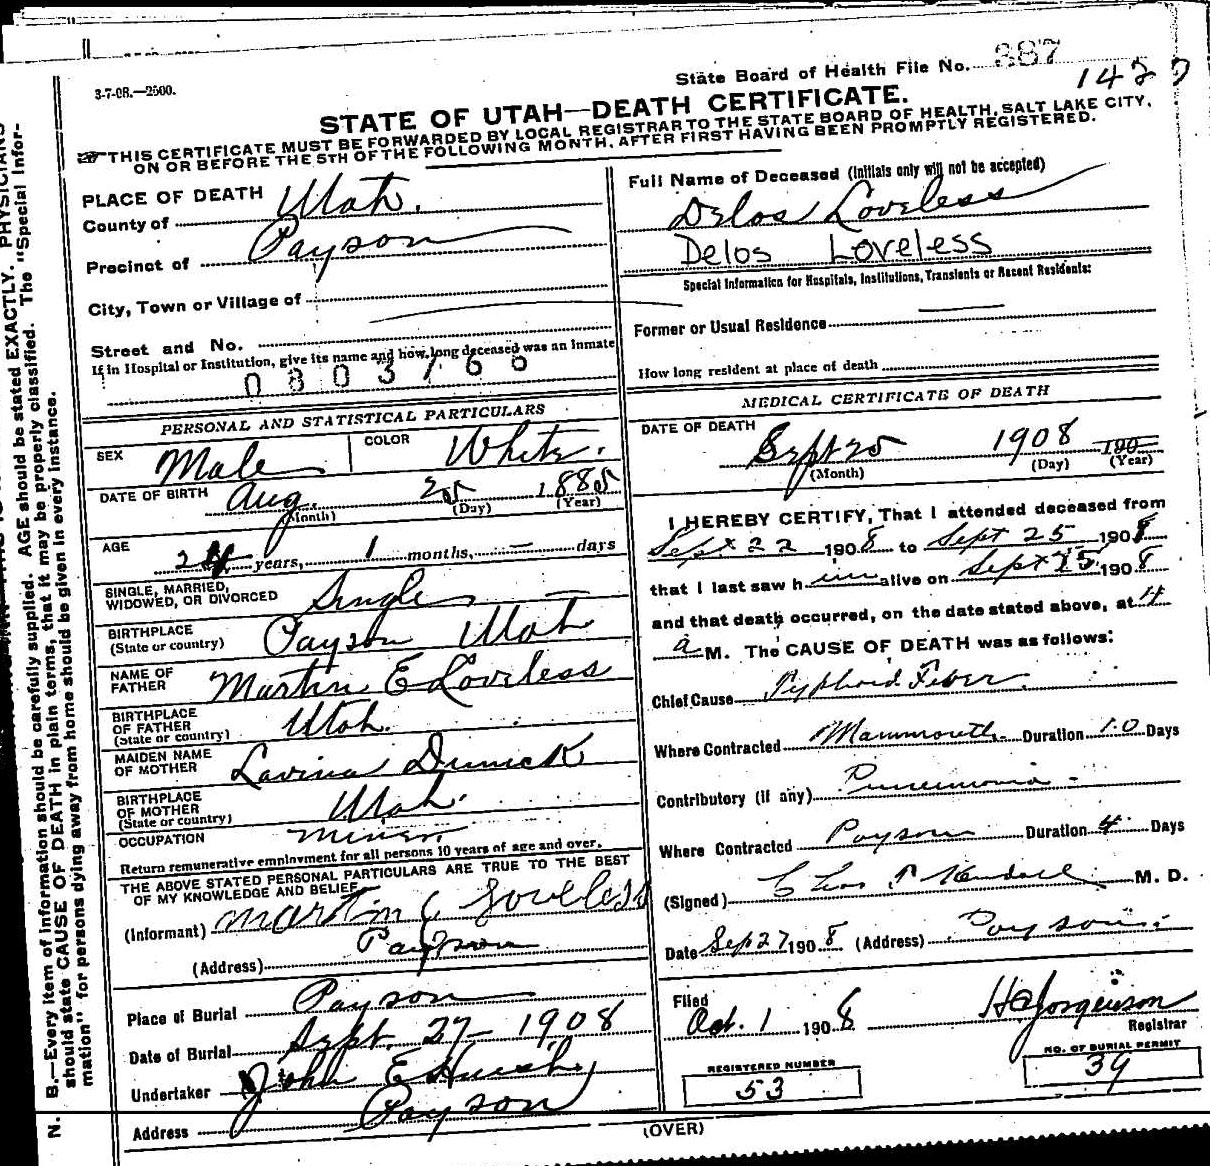 3-7-08.—2500.
State Board of Health File No. 387
STATE OF UTAH—DEATH CERTIFICATE.
THIS CERTIFICATE MUST BE FORWARDED BY LOCAL REGISTRAR TO THE STATE BOARD OF HEALTH, SALT LAKE CITY,
ON OR BEFORE THE 5TH OF THE FOLLOWING MONTH, AFTER FIRST HAVING BEEN PROMPTLY REGISTERED.
PLACE OF DEATH
County of Utah.
Precinct of Payson
City, Town or Village of
Street and No.
If in Hospital or Institution, give its name and how long deceased was an inmate
PERSONAL AND STATISTICAL PARTICULARS
SEX Male COLOR White.
DATE OF BIRTH Aug. 25 1885
(Month) (Day) (Year)
AGE years, 1 months, — days
SINGLE, MARRIED,
WIDOWED, OR DIVORCED Single
BIRTHPLACE
(State or country) Payson Utah
NAME OF
FATHER Martin E Loveless
BIRTHPLACE
OF FATHER
(State or country) Utah.
MAIDEN NAME
OF MOTHER Lavina
BIRTHPLACE
OF MOTHER
(State or country) Utah.
OCCUPATION Miner
Return remunerative employment for all persons 10 years of age and over.
THE ABOVE STATED PERSONAL PARTICULARS ARE TRUE TO THE BEST
OF MY KNOWLEDGE AND BELIEF
(Informant) Martin E Loveless
(Address) Payson
Place of Burial Payson
Date of Burial Sept. 27 1908
Undertaker John E
Address Payson
Full Name of Deceased (Initials only will not be accepted)
Delos Loveless
Delos Loveless
Special Information for Hospitals, Institutions, Transients or Recent Residents:
Former or Usual Residence
How long resident at place of death
MEDICAL CERTIFICATE OF DEATH
DATE OF DEATH Sept 25 1908 190
(Month) (Day) (Year)
I HEREBY CERTIFY, That I attended deceased from
Sept 22 1908 to Sept 25 1908
that I last saw him alive on Sept 25 1908
and that death occurred, on the date stated above, at 4
a M. The CAUSE OF DEATH was as follows:
Chief Cause Typhoid Fever.
Where Contracted Mammouth Duration 10 Days
Contributory (if any) Pneumonia -
Where Contracted Payson Duration 4 Days
(Signed) M. D.
Date Sep 27 1908 (Address) Payson.
Filed
Oct. 1 1908 Jorgenson
Registrar
REGISTERED NUMBER
53
NO. OF BURIAL PERMIT
39
(OVER)
N. B.—Every item of information should be carefully supplied. AGE should be stated EXACTLY. PHYSICIANS
should state CAUSE OF DEATH in plain terms, that it may be properly classified. The "Special Infor-
mation" for persons dying away from home should be given in every instance.